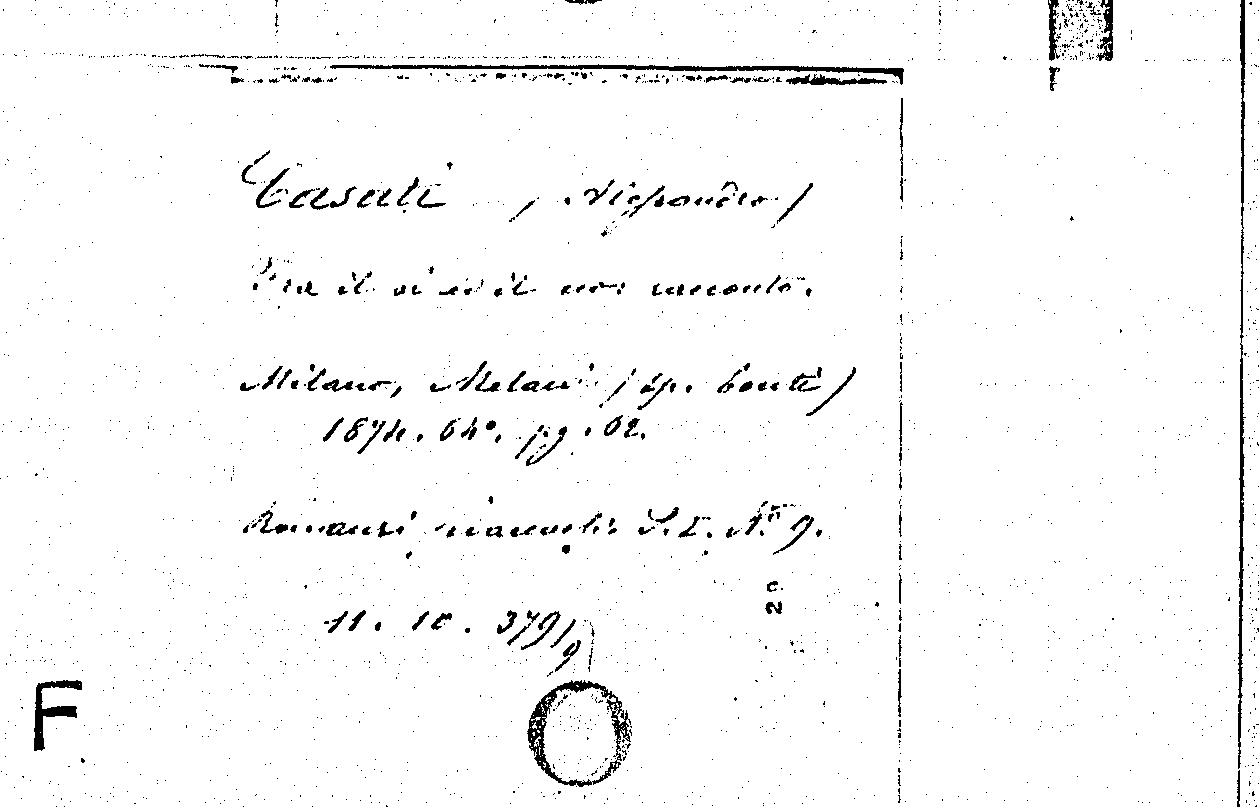 Casati, Alessandro)
Fra il si ed il no: racconto.
Milano, (tip. Conti)
1874. 64°. pg. 62.
Romanzi S.I. N.° 9.
11. 10. 379/9
20
F